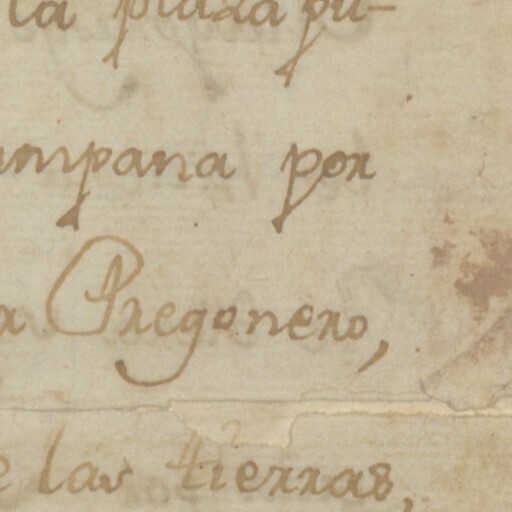 la plaza pu-
ampana por
r Pregonero,
e las tierras,